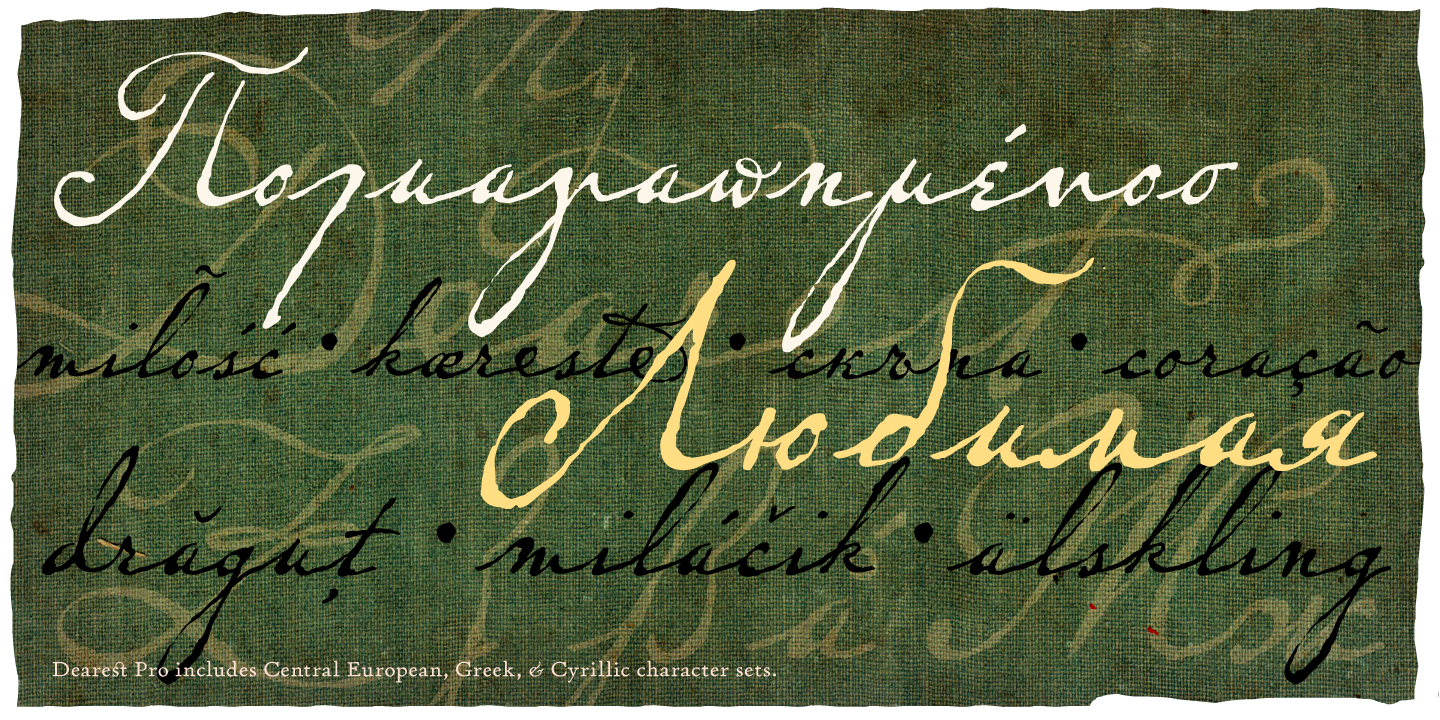 Πολυαγαπημένος
miłość • kæreste • скъпа • coração
Любимая
drăguț • miláčik • älskling
Dearest Pro includes Central European, Greek, & Cyrillic character sets.